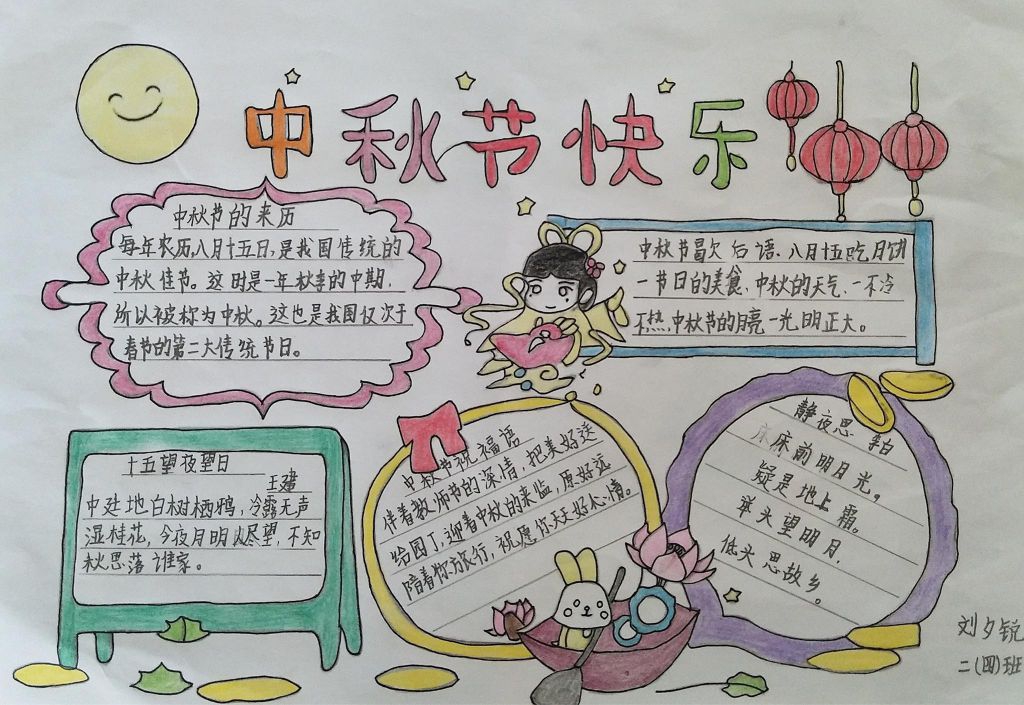 中秋节快乐
中秋节的来历
每年农历八月十五日,是我国传统的
中秋佳节。这时是一年秋季的中期,
所以被称为中秋。这也是我国仅次于
春节的第二大传统节日。
中秋节歇后语、八月十五吃月饼
一节日的美食、中秋的天气、一不冷
不热,中秋节的月亮一光明正大。
十五望夜望日
王建
中廷地白树栖鸦,冷露无声
湿桂花,今夜月明人尽望,不知
秋思落谁家。
中秋节祝福语
伴着教师节的深情,把美好送
给园丁,迎着中秋的来临,愿好运
陪着你方旅行,祝愿你天天好心情。
静夜思 李白
床前明月光。
疑是地上霜。
举头望明月,
低头思故乡。
刘夕锐
二(四)班